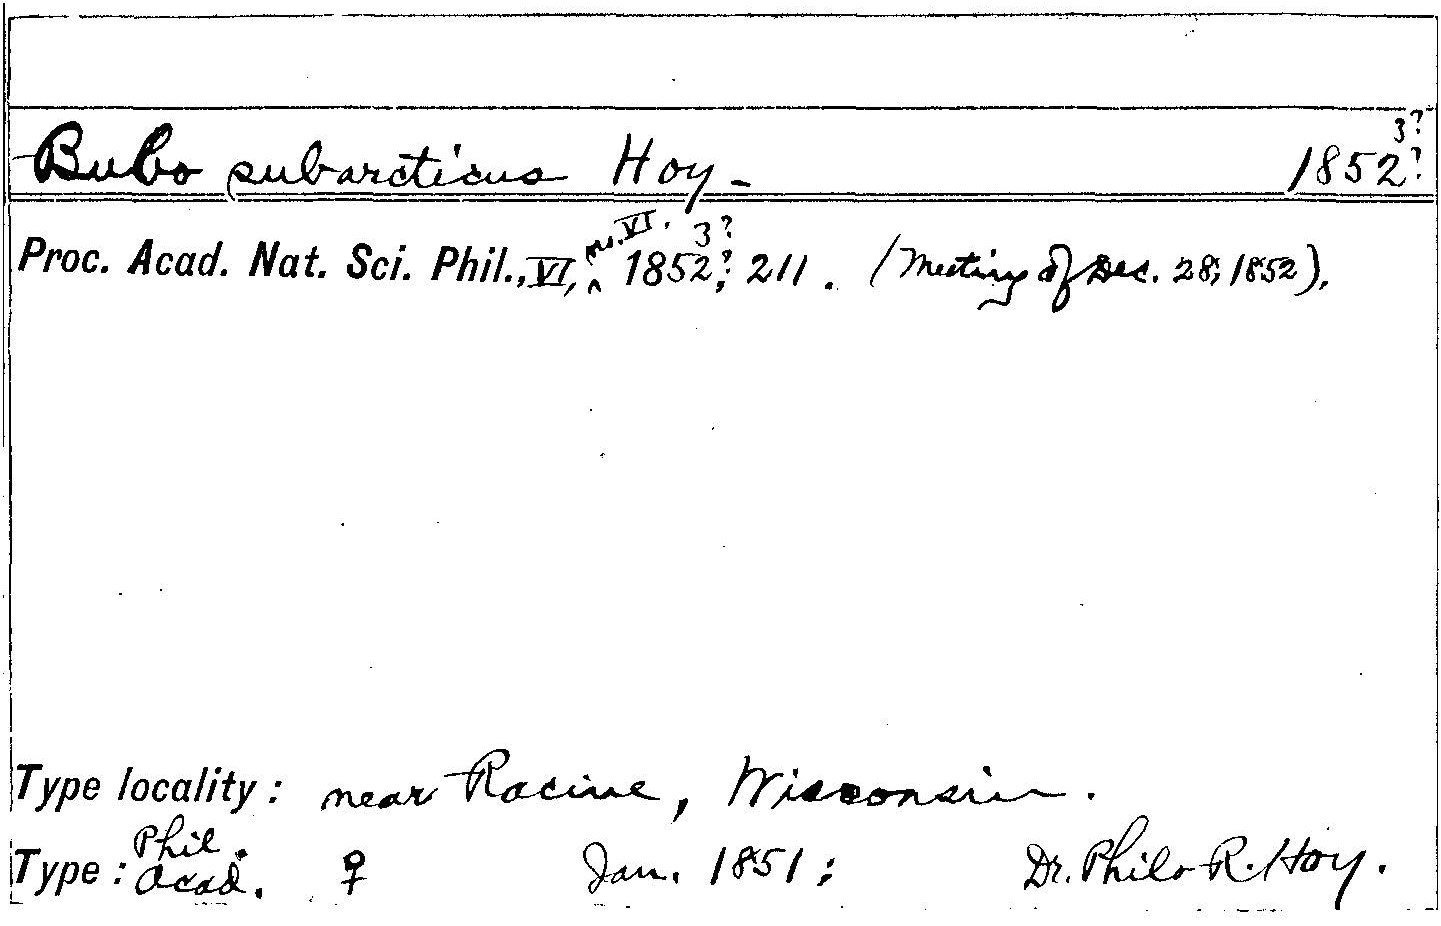 3?
Bubo subarcticus Hoy - 1852?
no. VI. 3?
Proc. Acad. Nat. Sci. Phil., VI, ^ 1852?; 211. (Meeting of Dec. 28, 1852).
Type locality: near Racine, Wisconsin.
Phil.
Type: Acad. ♀ Jan. 1851; Dr. Philo R. Hoy.